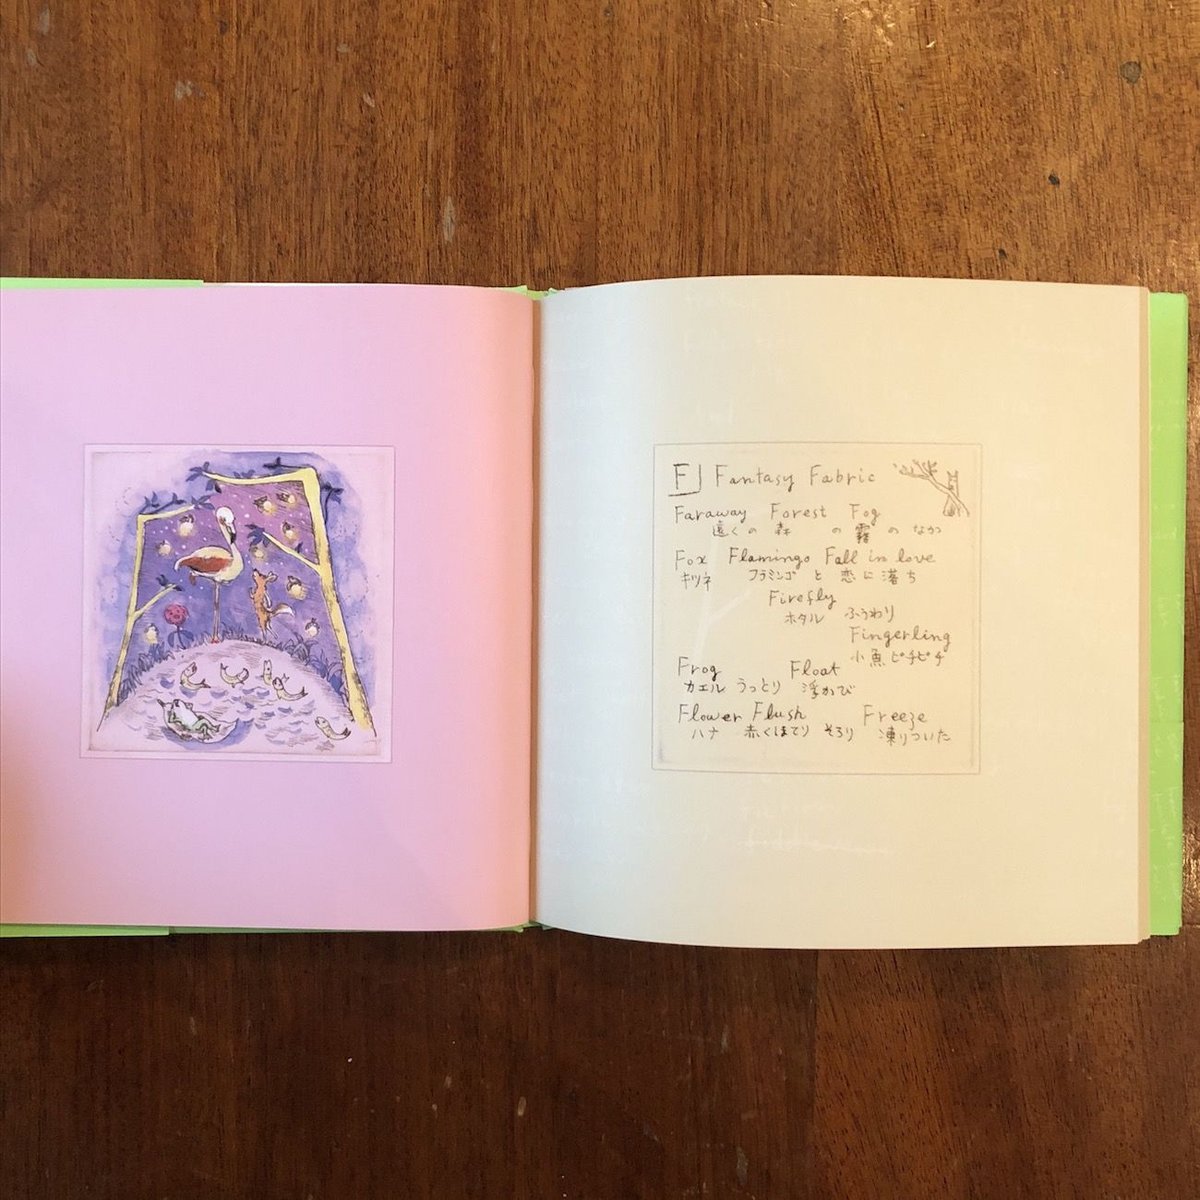 F Fantasy Fabric
Faraway Forest Fog
遠くの 森 の 霧 の なか
Fox Flamingo Fall in love
キツネ フラミンゴ と 恋に落ち
Firefly
ホタル ふうわり
Fingerling
小魚 ピチピチ
Frog Float
カエル うっとり 浮かび
Flower Flush Freeze
ハナ 赤くほてり そろり 凍りついた